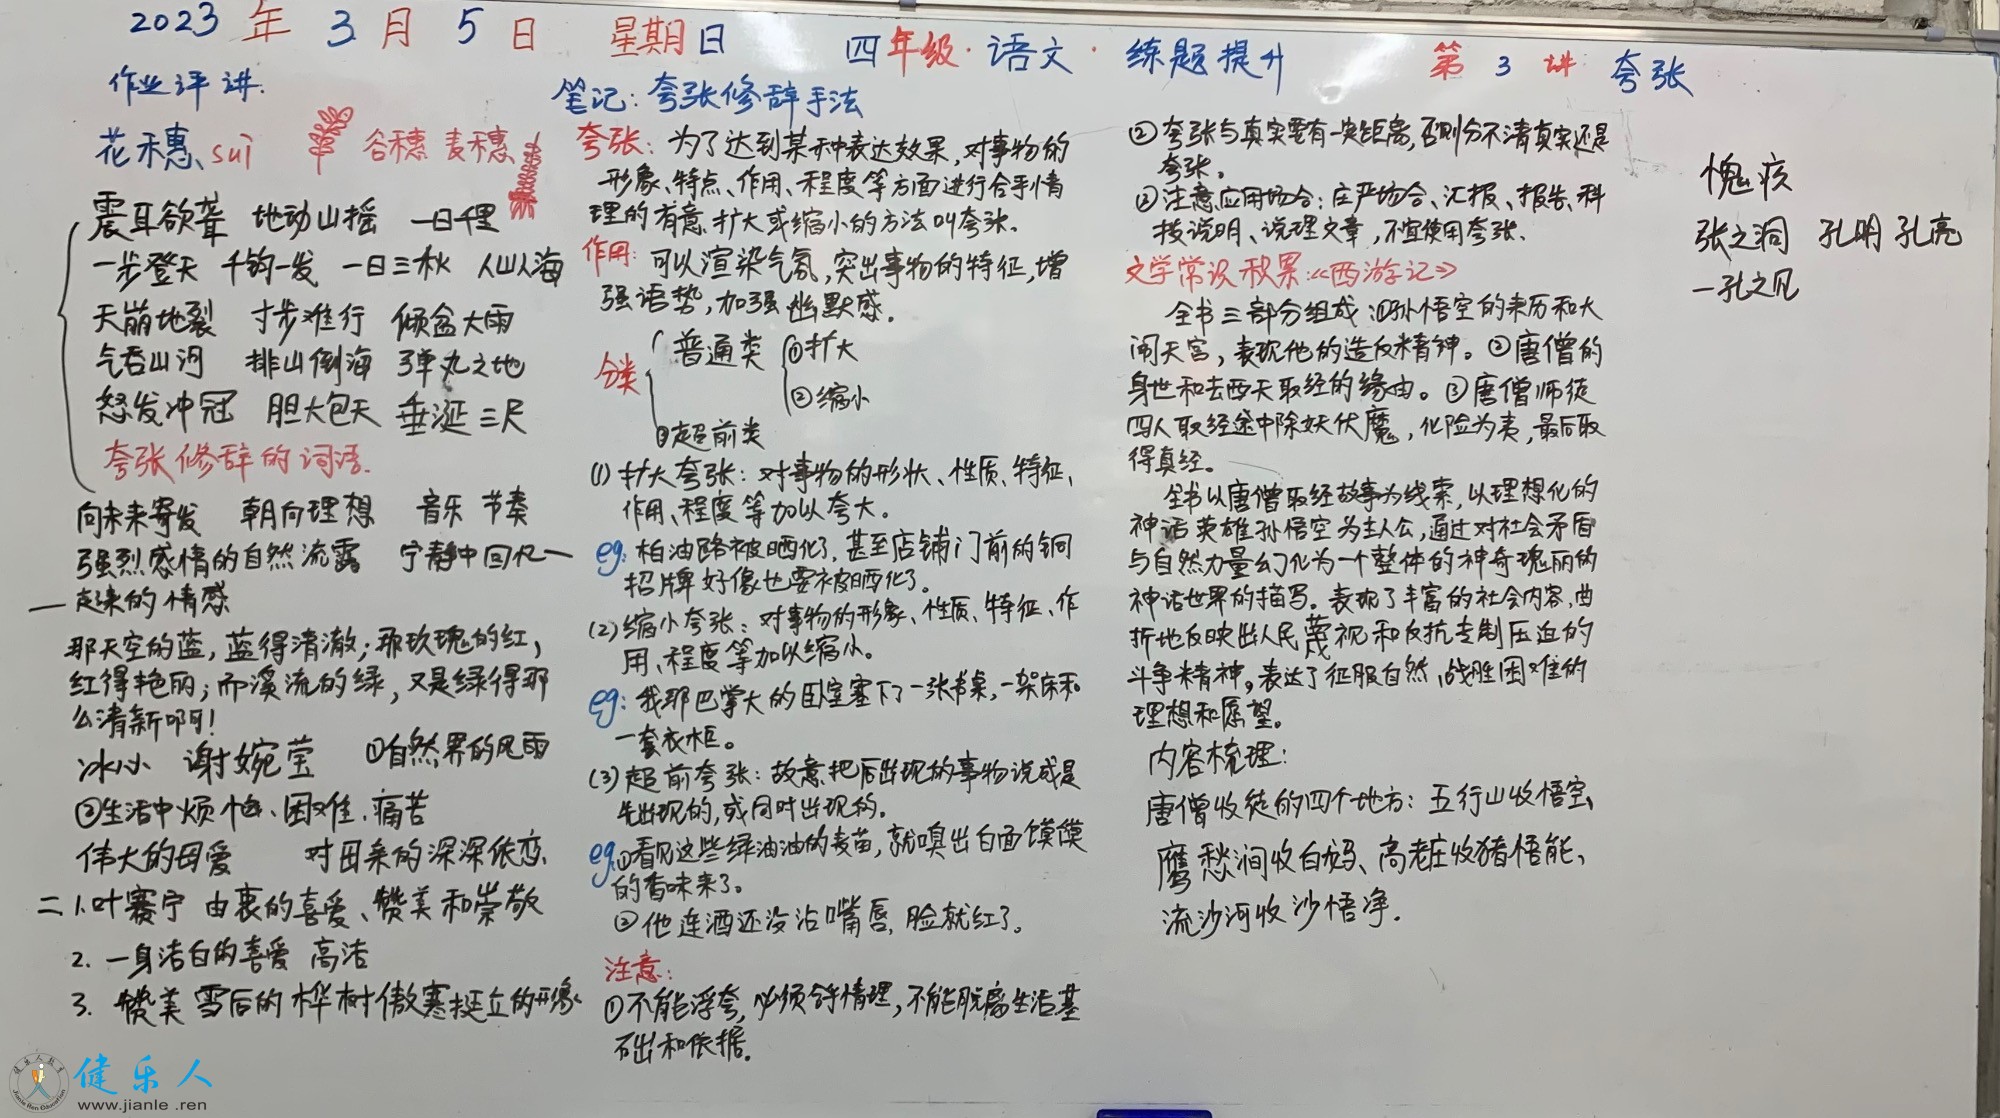 2023年3月5日 星期日 四年级·语文·练题提升 第3讲 夸张
作业评讲:
花穗 suì 谷穗 麦穗
震耳欲聋 地动山摇 一日千里
一步登天 千钧一发 一日三秋 人山人海
天崩地裂 寸步难行 倾盆大雨
气吞山河 排山倒海 弹丸之地
怒发冲冠 胆大包天 垂涎三尺
夸张修辞的词语.
向未来寄发 朝向理想 音乐 节奏
强烈感情的自然流露 宁静中回忆一
一起来的情感
那天空的蓝,蓝得清澈;那玫瑰的红,
红得艳丽;而溪流的绿,又是绿得那
么清新啊!
冰心 谢婉莹 ①自然界的风雨
②生活中烦恼、困难、痛苦
伟大的母爱 对母亲的深深依恋.
二 1.叶赛宁 由衷的喜爱、赞美和崇敬
2. 一身洁白的喜爱 高洁
3. 赞美雪后的桦树傲寒挺立的形象
笔记:夸张修辞手法
夸张:为了达到某种表达效果,对事物的
形象、特点、作用、程度等方面进行合乎情
理的有意扩大或缩小的方法叫夸张。
作用:可以渲染气氛,突出事物的特征,增
强语势,加强幽默感.
分类
普通类 ①扩大
②缩小
②超前类
(1)扩大夸张:对事物的形状、性质、特征、
作用、程度等加以夸大。
eg:柏油路被晒化了,甚至店铺门前的铜
招牌好像也要被晒化了。
(2)缩小夸张:对事物的形象、性质、特征、作
用、程度等加以缩小。
eg:我那巴掌大的卧室塞下了一张书桌,一架床和
一套衣柜。
(3)超前夸张:故意把后出现的事物说成是
先出现的,或同时出现的。
eg:①看见这些绿油油的麦苗,就嗅出白面馍馍
的香味来了。
②他连酒还没沾嘴唇,脸就红了。
注意:
①不能浮夸,必须合乎情理,不能脱离生活基
础和依据。
②夸张与真实要有一定距离,否则分不清真实还是
夸张。
③注意应用场合:庄严场合、汇报、报告、科
技说明、说理文章,不宜使用夸张.
文学常识积累:《西游记》
全书三部分组成:①孙悟空的来历和大
闹天宫,表现他的造反精神。②唐僧的
身世和去西天取经的缘由。③唐僧师徒
四人取经途中除妖伏魔,化险为夷,最后取
得真经。
全书以唐僧取经故事为线索,以理想化的
神话英雄孙悟空为主人公,通过对社会矛盾
与自然力量幻化为一个整体的神奇瑰丽的
神话世界的描写。表现了丰富的社会内容,曲
折地反映出人民蔑视和反抗专制压迫的
斗争精神,表达了征服自然、战胜困难的
理想和愿望。
内容梳理:
唐僧收徒的四个地方:五行山收悟空、
鹰愁涧收白龙马、高老庄收猪悟能、
流沙河收沙悟净.
愧疚
张之洞 孔明 孔亮
一孔之见
健乐人
www.jianle.ren